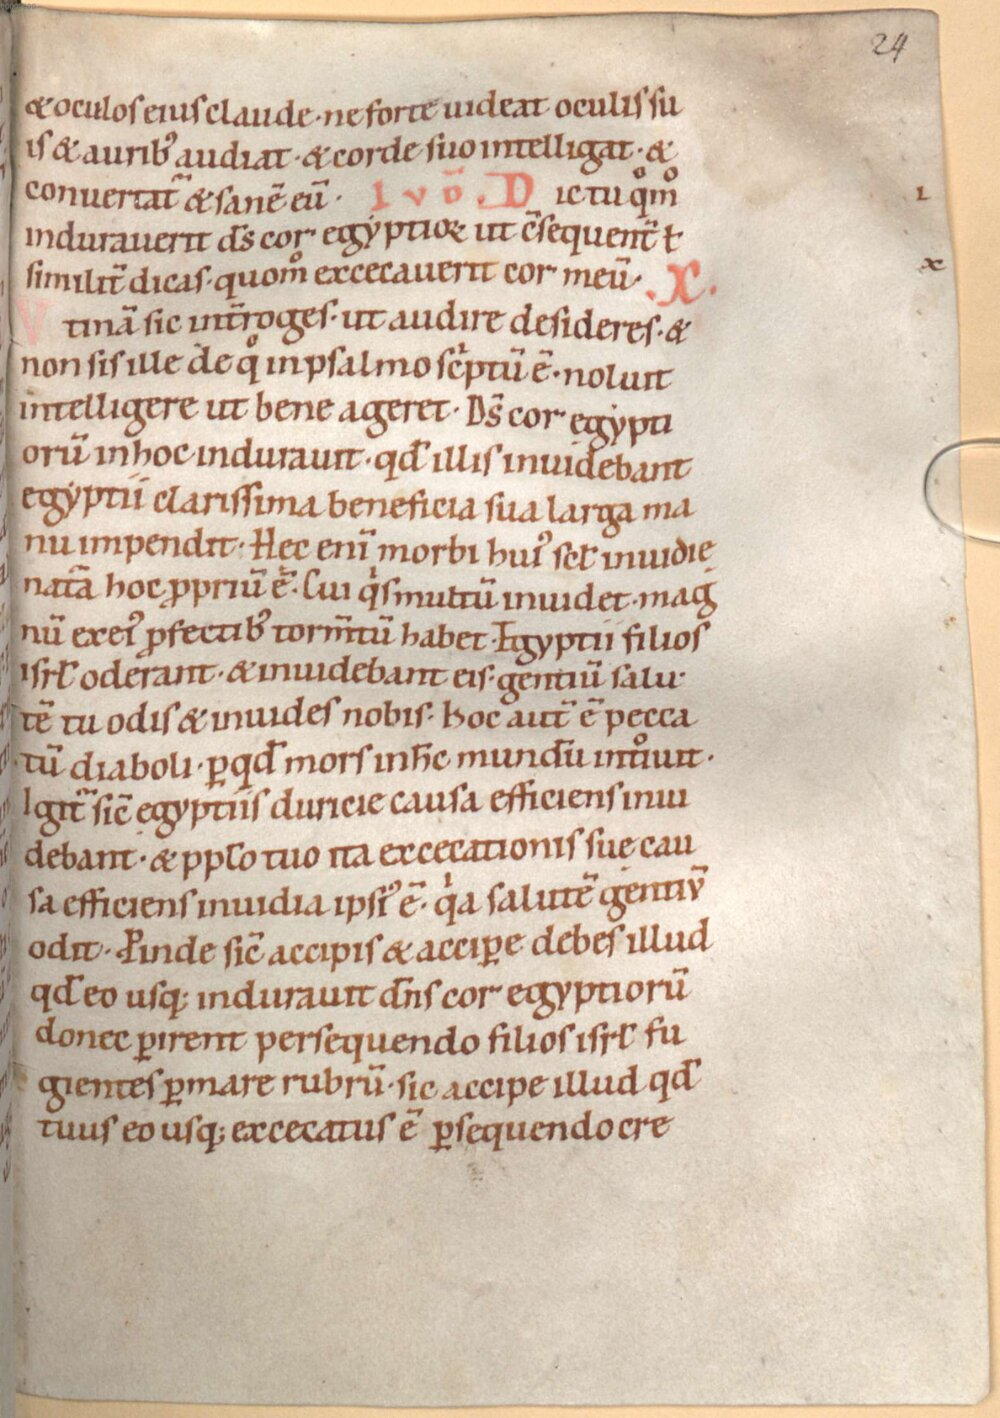 24
& oculos eius claude · ne forte uideat oculis su
is & aurib᷒ audiat · & corde suo intelligat · &
conuertat᷑ & sanē eū · IVD̄. Dic tu qͦmͦ
indurauerit ds̄ cor egyptioꝝ ut c̄sequent᷑ ł
similit᷑ dicas · quomͦ excecauerit cor meū · .X.
Vtinā sic int᷑roges · ut audire desideres · &
non sis ille de qͦ in psalmo sc͛ptū ē · noluit
intelligere ut bene ageret · Ds̄ cor egypti
orū in hoc indurauit · qđ illis inuidebant
egyptii clarissima beneficia sua larga ma
nu impendit · Hec enī morbi hui᷒ scł inuidie
natā hoc ꝓpriū ē · Cui qͥs multū inuidet · mag
nū ex ei᷒ ꝓfectib᷒ torm̄tū habet · Egyptii filios
isrł oderant · & inuidebant eis · gentiū salu·
tē tu odis & inuides nobis · hoc aut̄ ē pecca
tū diaboli · ꝑ qđ mors in hc̄ mundū intͦiuit ·
Igit᷑ sic̄ egyptiis duricie causa efficiens inui
debant · & pplo tuo ita excecationis sue cau
sa efficiens inuidia ipsi᷒ ē · qͥa salutē gentiū
odit · Proinde sic̄ accipis & acciꝑe debes illud
qđ eo usq; indurauit dn̄s cor egyptiorū
donec ꝑirent persequendo filios isrł fu
gientes ꝑ mare rubrū · sic accipe illud qđ
tuus eo usq; excecatus ē ꝑsequendo cre
I
x